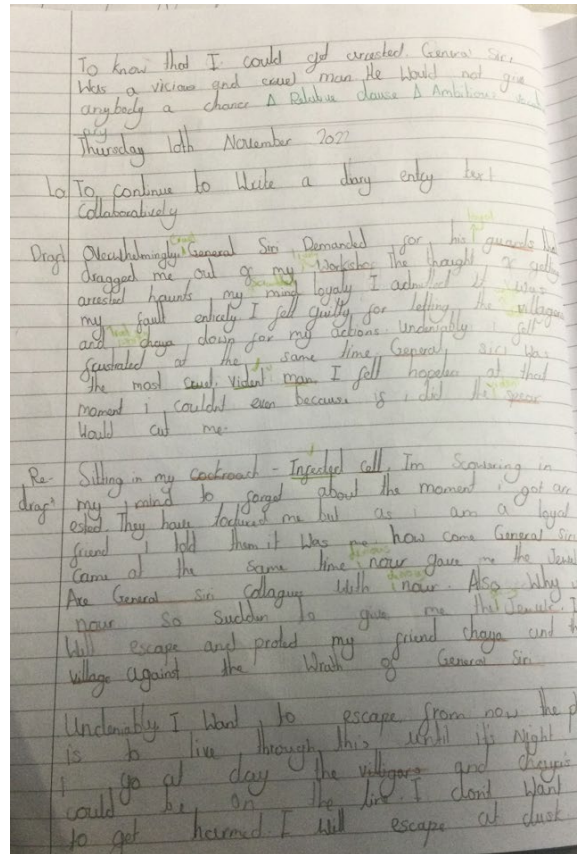 To know that I could get arrested. General Siri
Was a vicious and cruel man He Would not give
anybody a chance Δ Relative clause Δ Ambitious
Thursday 10th November 2022
Lo To continue to Write a diary entry text
Collaboratively
loyal
Draft Overwhelmingly General Siri Demanded for his guards
dragged me out of my Workshop The thought of getting
arrested haunts my mind loyaly I admitted it was
my fault entirely I felt guilty for letting the villagers
and chaya, down for my actions. Undeniably i felt
frustrated at the same time, General siri was
the most cruel, man. I felt at that
moment i couldnt even because if i did the spear
Would cut me.
Re- Sitting in my cockroach - Infested cell, Im Scowering in
draft my mind to forget about the moment i got arr
ested. They have me but as i am a loyal
friend I told them it Was me how come General Siri
Came at the same time nour gave me the Jewel
Are General siri With nour. Also Why
nour so Sudden to give me the Jewels. I
Will escape and protect my friend chaya and the
village against the Wrath of General Siri
Undeniably I Want to escape from now the
is to live through this until it's Night
i go at day the villigars and
could be on the line. I dont Want
to get harmed I Will escape at dusk